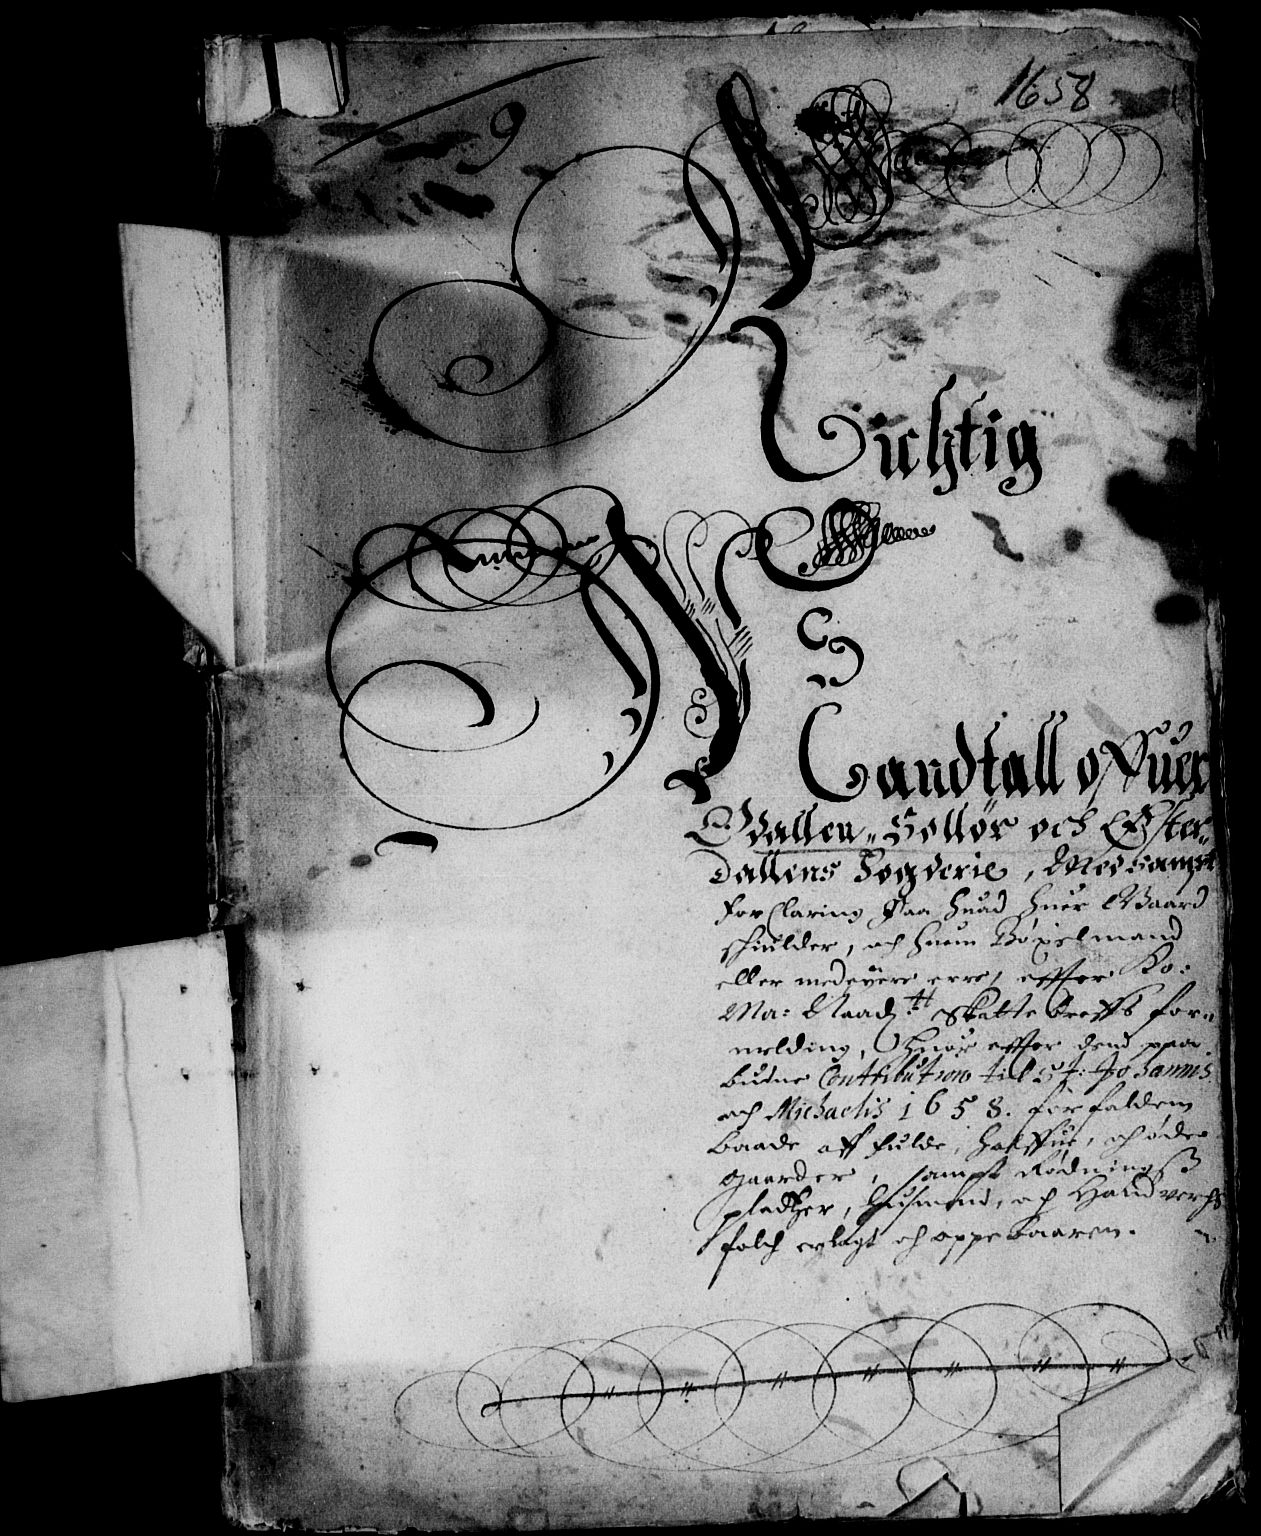 1658
9
Richtig
Mandtall offuer
Odallen, Sollør och Øster-
dallens Fogderie, Medsampt
forClaring Paa huad huer Gaard
schiulder, och huem Böxelmand
eller medeyere erre, effter Ko:
Ma: Naadigste Skatte breffs for-
melding, huor effter dend paa
budne Contribution till St: Johannis
och Michaelis 1658. forfalden
baade aff fulde, halffue, och øde
gaarder, sampt Rødnings
pladtzer, husmend, och Handverchs
folch erlagt och oppebaaren.